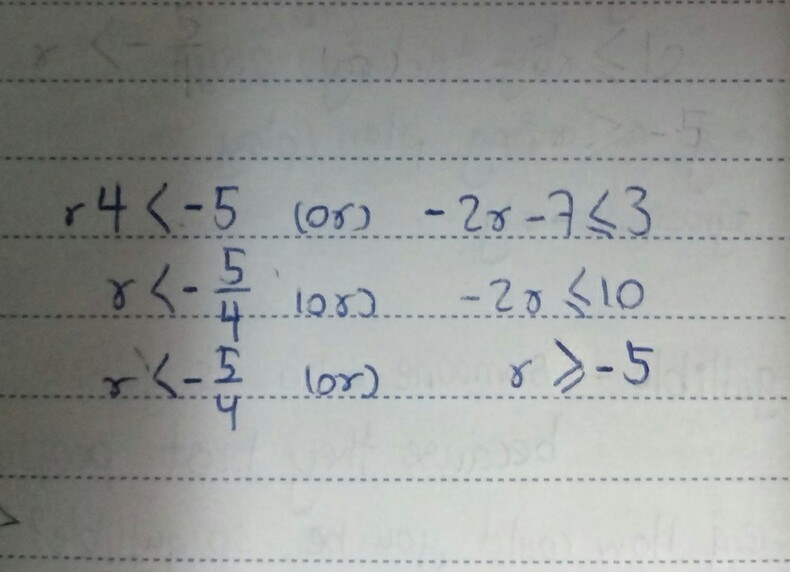 r4 < -5 (or) -2r - 7 ≤ 3
r < -5/4 (or) -2r ≤ 10
r < -5/4 (or) r ≥ -5